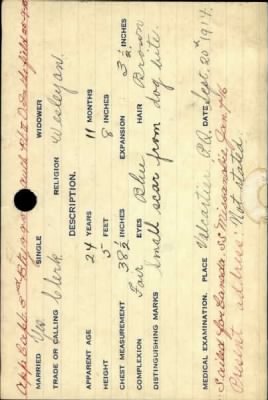 MARRIED No SINGLE WIDOWER
TRADE OR CALLING Clerk RELIGION Wesleyan.
DESCRIPTION.
APPARENT AGE 24 YEARS 11 MONTHS
HEIGHT 5 FEET 8 INCHES
CHEST MEASUREMENT 38½ INCHES EXPANSION 3½ INCHES
COMPLEXION Fair EYES Blue HAIR Brown
DISTINGUISHING MARKS Small scar from dog bite.
MEDICAL EXAMINATION. PLACE Valcartier P.Q. DATE Sept. 20th 1914.
Sailed for Canada SS Missanabie
Present address: Not stated.